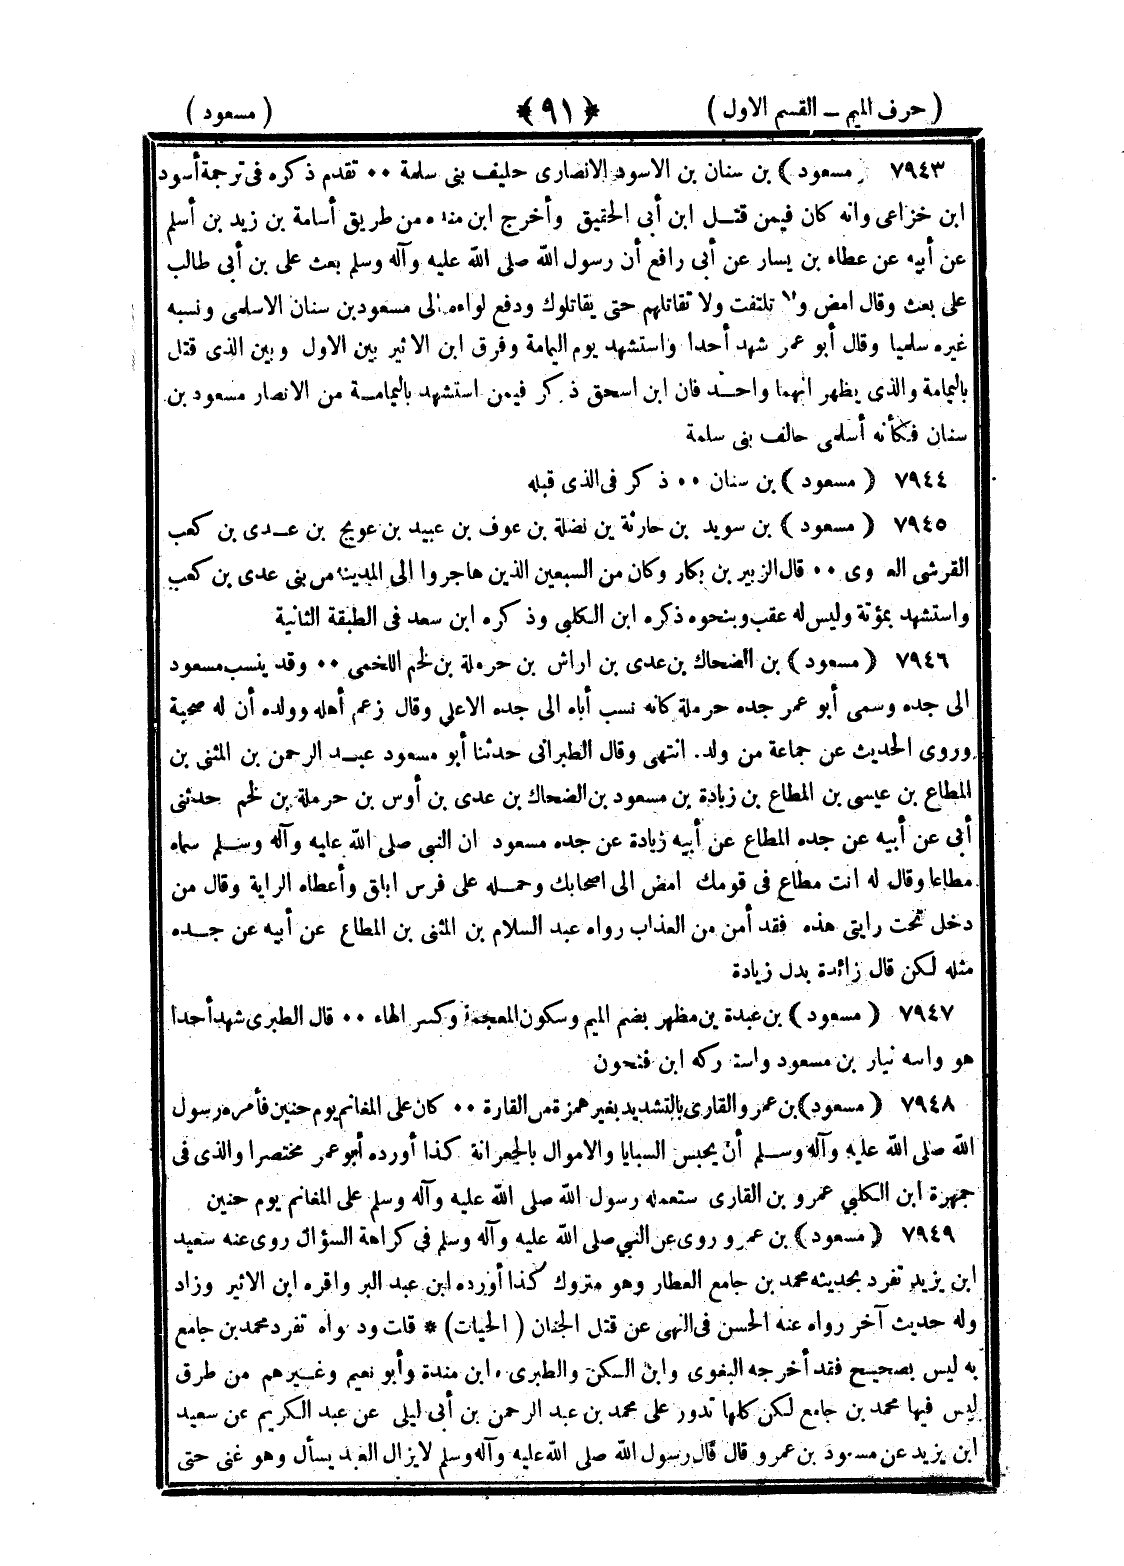 ( حرف الميم ــ القسم الاول ) ﴿ ٩١ ﴾ ( مسعود )
٧٩٤٣ ( مسعود ) بن سنان بن الاسود الانصارى حليف بنى سلمة ٠٠ تقدم ذكره فى ترجمة أسود
ابن خزاعى وانه كان فيمن قتـل ابن أبى الحقيق وأخرج ابن منده من طريق أسامة بن زيد بن أسلم
عن أبيه عن عطاء بن يسار عن أبى رافع أن رسول الله صلى الله عليه وآله وسلم بعث على بن أبى طالب
على بعث وقال امض ولا تلتفت ولا تقاتلهم حتى يقاتلوك ودفع لواءه الى مسعود بن سنان الاسلمى ونسبه
غيره سلميا وقال أبو عمر شهد أحدا واستشهد يوم اليمامة وفرق ابن الاثير بين الاول وبين الذى قتل
باليمامة والذى يظهر انهما واحـد فان ابن اسحق ذكر فيمن استشهد باليمامـة من الانصار مسعود بن
سنان فكأنه أسلمى حالف بنى سلمة
٧٩٤٤ ( مسعود ) بن سنان ٠٠ ذكر فى الذى قبله
٧٩٤٥ ( مسعود ) بن سويد بن حارثة بن نضلة بن عوف بن عبيد بن عويج بن عـدى بن كعب
القرشى العدوى ٠٠ قال الزبير بن بكار وكان من السبعين الذين هاجروا الى المدينة من بنى عدى بن كعب
واستشهد بمؤتة وليس له عقب وبنحوه ذكره ابن الكلبي وذكره ابن سعد فى الطبقة الثانية
٧٩٤٦ ( مسعود ) بن الضحاك بن عدى بن اراش بن حرملة بن لخم اللخمى ٠٠ وقد ينسب مسعود
الى جده وسمى أبو عمر جده حرملة كانه نسب أباه الى جده الاعلي وقال زعم أهله وولده أن له صحبة
وروى الحديث عن جماعة من ولد. انتهى وقال الطبرانى حدثنا أبو مسعود عبـد الرحمن بن المثنى بن
المطاع بن عيسى بن المطاع بن زيادة بن مسعود بن الضحاك بن عدى بن أوس بن حرملة بن لخم حدثنى
أبى عن أبيه عن جده المطاع عن أبيه زيادة عن جده مسعود ان النبى صلى الله عليه وآله وسـلم سماه
مطاعا وقال له انت مطاع فى قومك امض الى اصحابك وحمـله على فرس ابلق وأعطاه الراية وقال من
دخل تحت رايتى هذه فقد أمن من العذاب رواه عبد السلام بن المثنى بن المطاع عن أبيه عن جـده
مثله لكن قال زائدة بدل زيادة
٧٩٤٧ ( مسعود ) بن عبدة بن مظهر بضم الميم وسكون المعجمة وكسر الهاء ٠٠ قال الطبرى شهد أحدا
هو وابنه نيار بن مسعود واستدركه ابن فتحون
٧٩٤٨ ( مسعود ) بن عمرو القارى بالتشديد بغير همزة من القارة ٠٠ كان على المغانم يوم حنين فأمره رسول
الله صلى الله عليه وآله وسـلم أن يحبس السبايا والاموال بالجعرانة كذا أورده أبو عمر مختصرا والذى فى
جمهرة ابن الكلبي عمرو بن القارى ستعمله رسول الله صلى الله عليه وآله وسلم على المغانم يوم حنين
٧٩٤٩ ( مسعود ) بن عمرو روى عن النبي صلى الله عليه وآله وسلم فى كراهة السؤال روى عنه سعيد
ابن يزيد تفرد بحديثه محمد بن جامع العطار وهو متروك كذا أورده ابن عبد البر واقره ابن الاثير وزاد
وله حديث آخر رواه عنه الحسن فى النهى عن قتل الجنان ( الحيات ) * قلت ودعواه تفرد محمد بن جامع
به ليس بصحيح فقد أخرجه البغوى وابن السكن والطبرى وابن مندة وأبو نعيم وغيرهم من طرق
ليس فيها محمد بن جامع لكن كلها تدور على محمد بن عبد الرحمن بن أبى ليلى عن عبد الكريم عن سعيد
ابن يزيد عن مسعود بن عمرو قال قال رسول الله صلى الله عليه وآله وسلم لا يزال العبد يسأل وهو غنى حتى